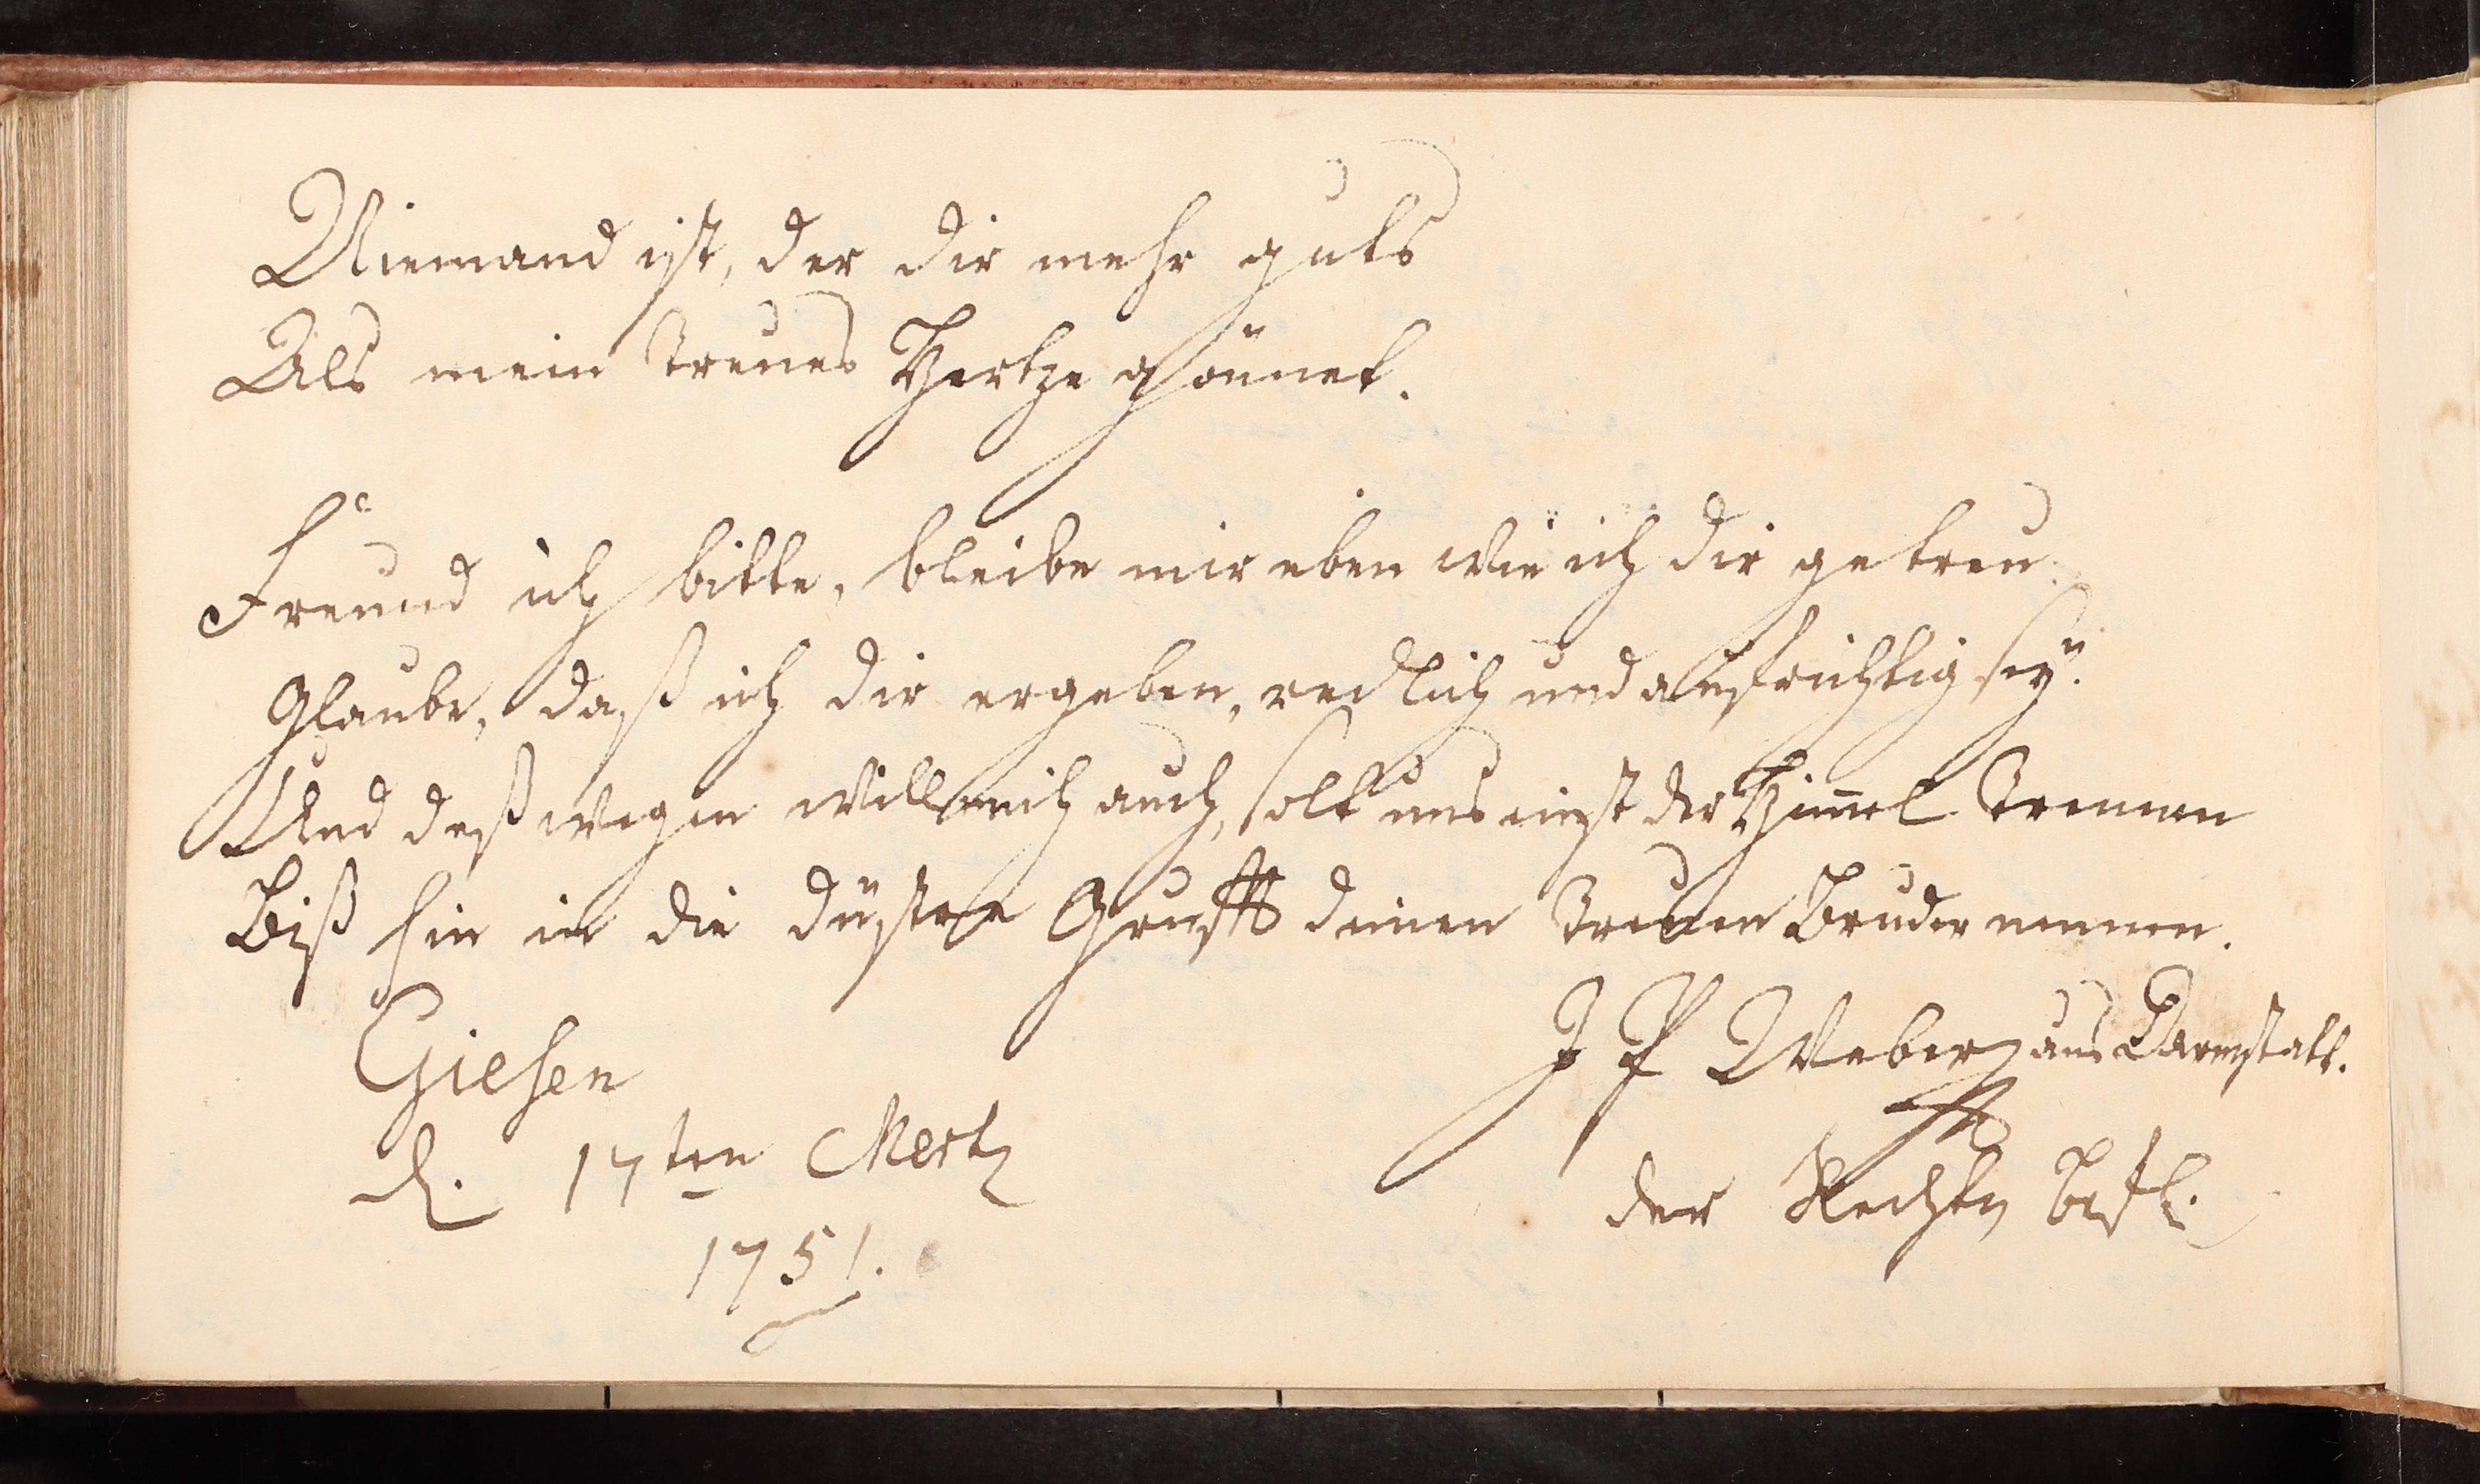 Niemand ist, der dir mehr guts
Als mein Treues Hertze gönnet.
Freund ich bitte, bleibe mir eben wie ich dir getreu
Glaube, daß ich dir ergeben, redlich und aufrichtig seÿ.
Und deßwegen will mich auch, solt uns einst der Him̄el Trennen
Biß hin in die düstre Grufft deinen Treuen Bruder nennen.
Giesen
d. 17ten Mertz
1751.
J F Weber aus Darmstatt.
der Rechten